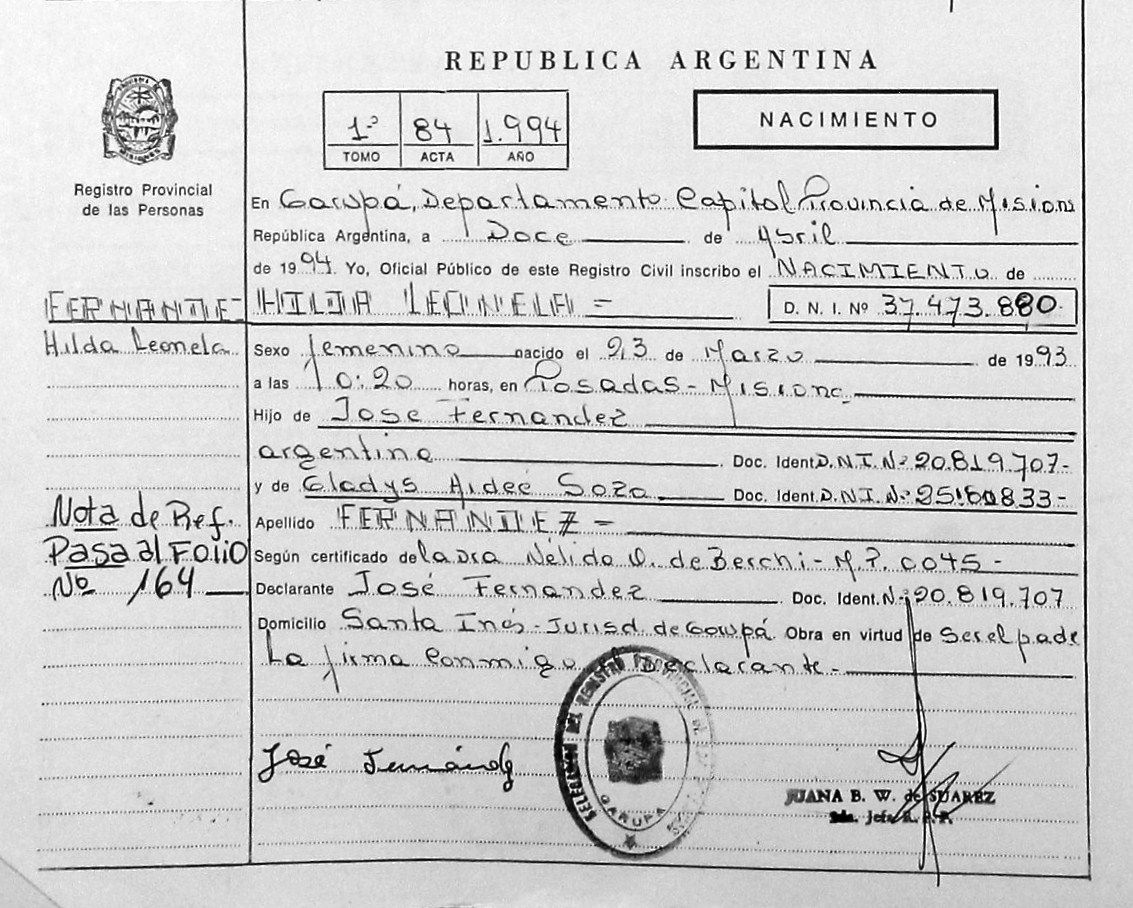 REPUBLICA ARGENTINA
1º 84 1.994
TOMO ACTA AÑO
NACIMIENTO
Registro Provincial
de las Personas
En Garupá, Departamento Capital Provincia de Misions
República Argentina, a Doce de Abril
de 1994 Yo, Oficial Público de este Registro Civil inscribo el NACIMIENTO de
FERNANDEZ HILDA LEONELA =
D. N. I. Nº 37.473.880.
Hilda Leonela
Sexo femenino nacido el 23 de Marzo de 1993
a las 10:20 horas, en Posadas - Misione
Hijo de Jose Fernandez
argentino Doc. Ident. D.N.I. Nº 20.819.707-
y de Gladys Aideé Sozo Doc. Ident. D.N.I. Nº
Nota de Ref.
Pasa al Folio
Nº 164
Apellido FERNANDEZ =
Según certificado de la dra Nélida O. de Berchi - M.P. 0045 -
Declarante José Fernandez Doc. Ident. Nº 20.819.707
Domicilio Santa Inés - Jurisd de Garupá Obra en virtud de Ser el padre
La firma Conmigo el Declarante.-
José Fernández
GARUPA
JUANA B. W. de SUAREZ